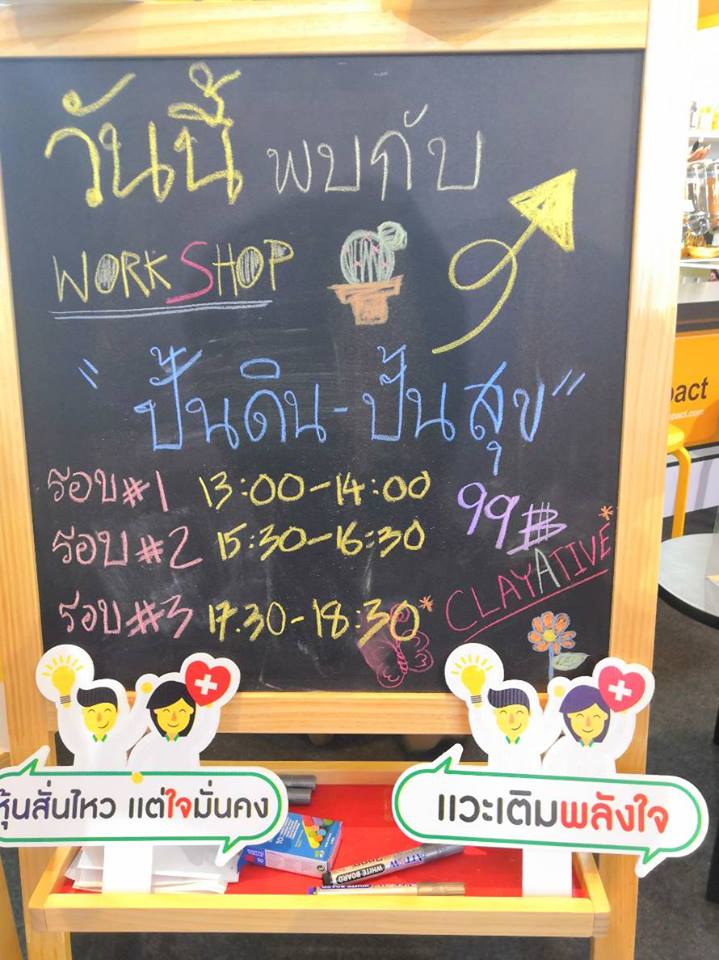 วันนี้ พบกับ
WORKSHOP
"ปั้นดิน-ปั้นสุข"
รอบ#1 13:00-14:00
99฿
รอบ#2 15:30-16:30
CLAYATIVE*
รอบ#3 17.30-18:30*
หุ้นสั่นไหว แต่ใจมั่นคง
แวะเติมพลังใจ
WHITE BOARD
pact
pact.com